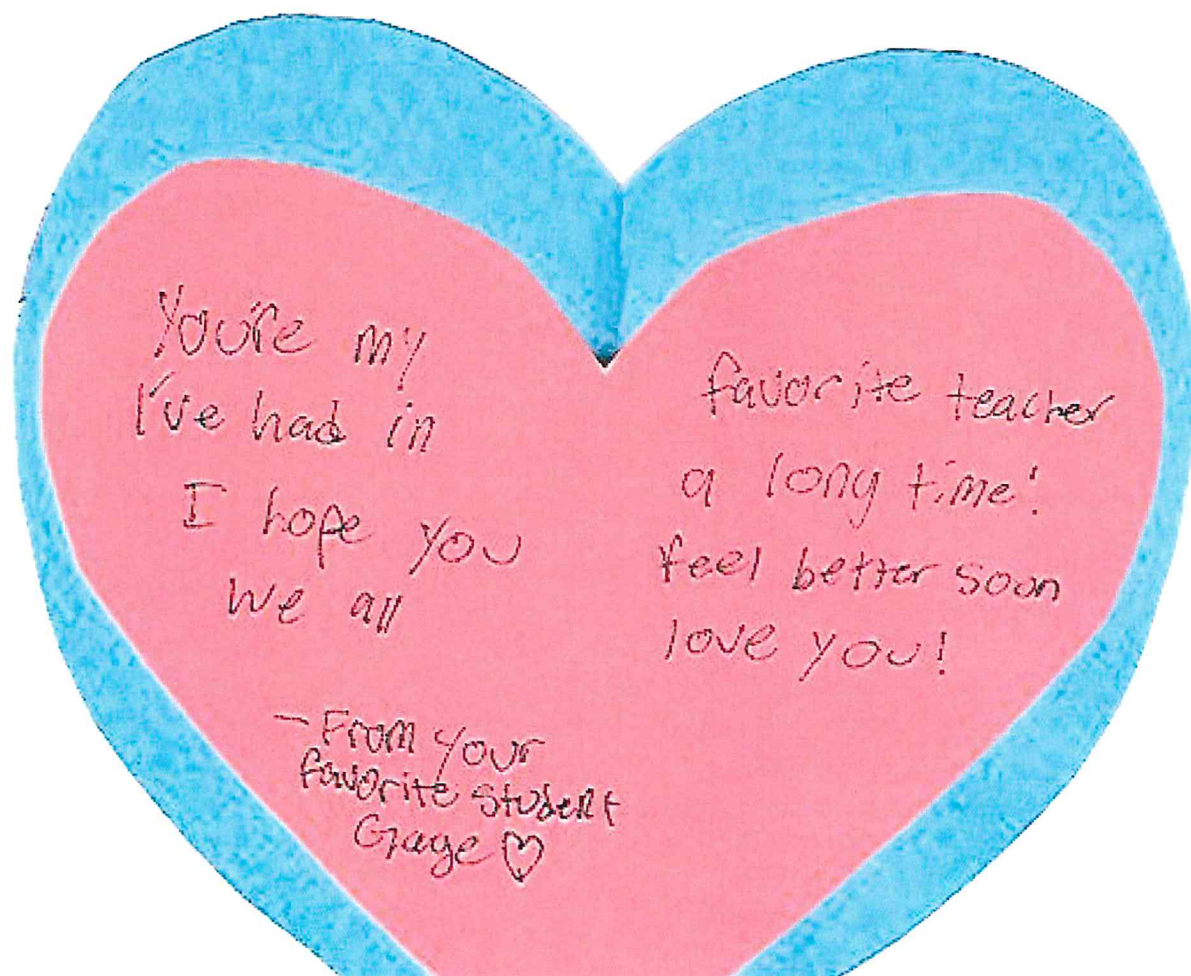 You're my favorite teacher
I've had in a long time!
I hope you feel better soon
We all love you!
- From your
favorite student
Gage ♡